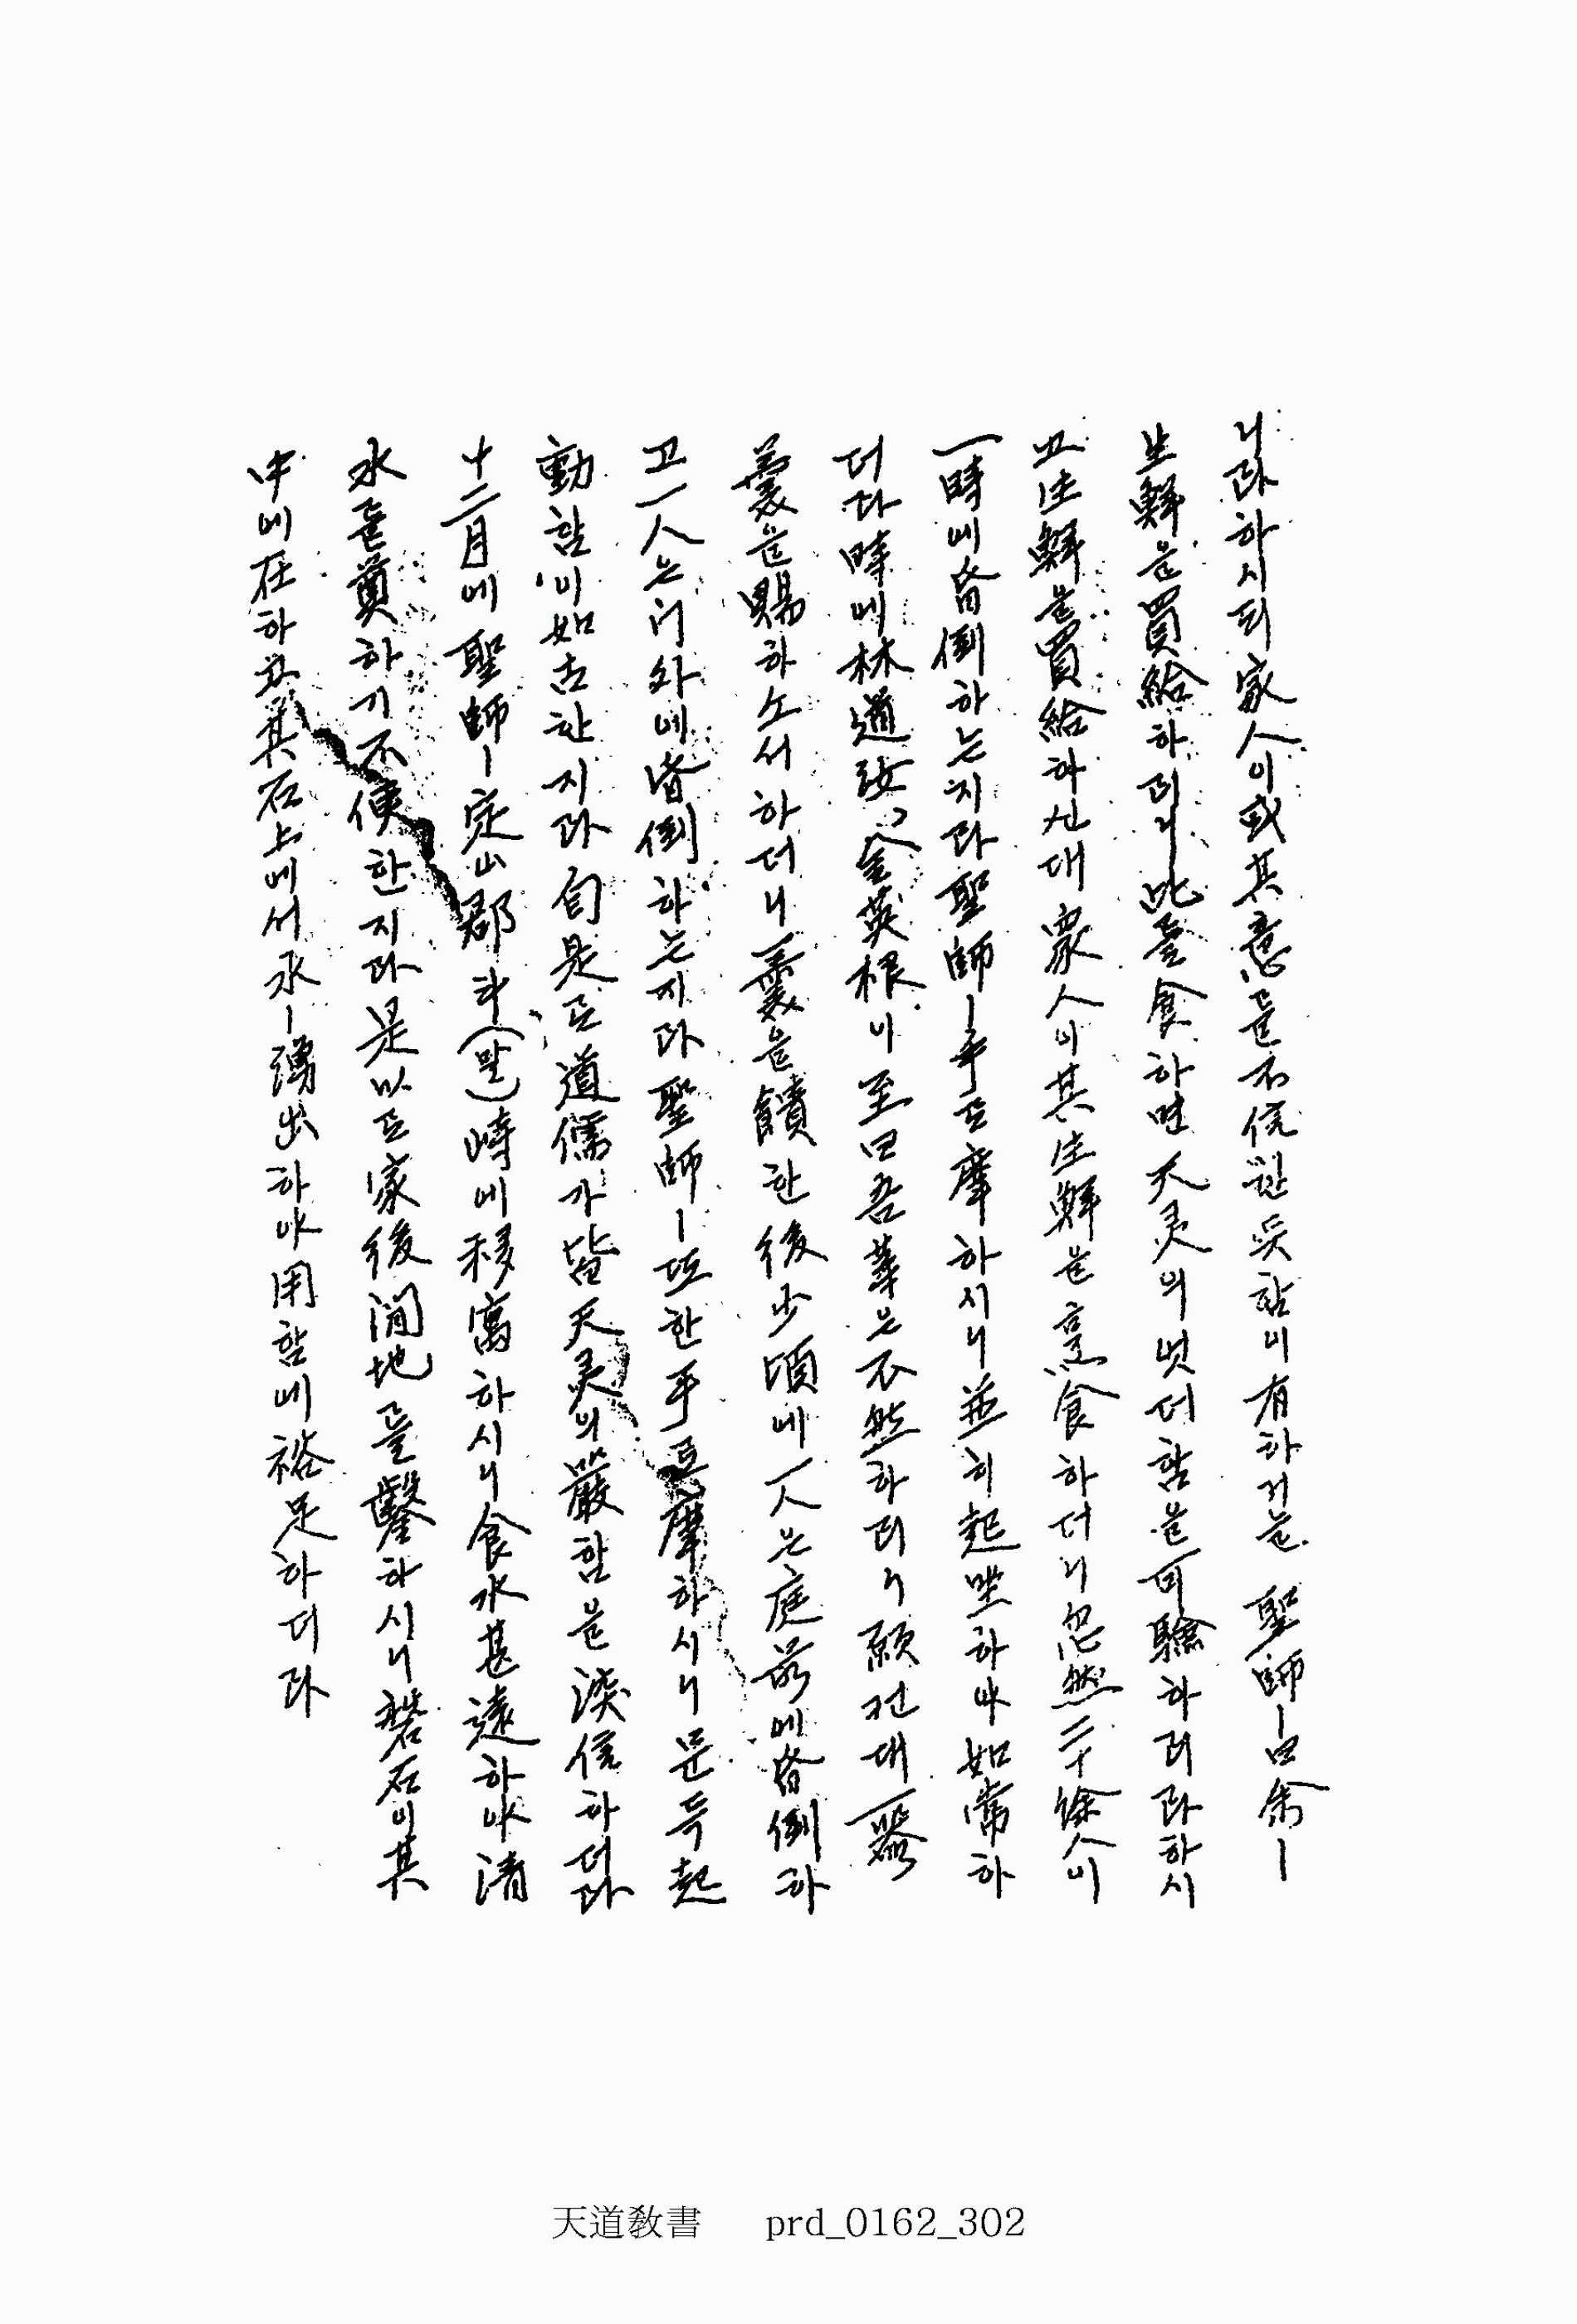 니라하시되 家人이 或 其意를 不信한 듯함이 有하거늘 聖師ㅣ曰 余ㅣ
生鮮을 買給하리니 此를 食하면 天灵의 엇더함을 可驗하리라하시
고 生鮮을 買給하신대 家人이 其 生鮮을 烹食하더니 忽然 二十餘人이
一時에 昏倒하는지라 聖師ㅣ 手로 摩하시니 並히 起坐하야 如常하
더라 時에 林道汝, 金英根이 至曰 吾輩는 不然하리니 願컨대 一器
羹을 賜하소서 하더니 羹을 饋한 後 少頃에 一人은 庭前에 昏倒하
고 一人은 门外에 昏倒하는지라 聖師ㅣ 또한 手로 摩하시니 문득 起
動함이 如古한지라 自是로 道儒가 皆 天灵의 嚴함을 深信하더라
十二月에 聖師ㅣ 定山郡 (말)峙에 移寓하시니 食水 甚遠하야 清
水를 奠하기 不便한지라 是以로 家後 閒地를 鑿하시니 磐石이 其
中에 在하고 其 石上에서 水ㅣ 湧出하야 用함에 裕足하더라
天道教書 prd_0162_302